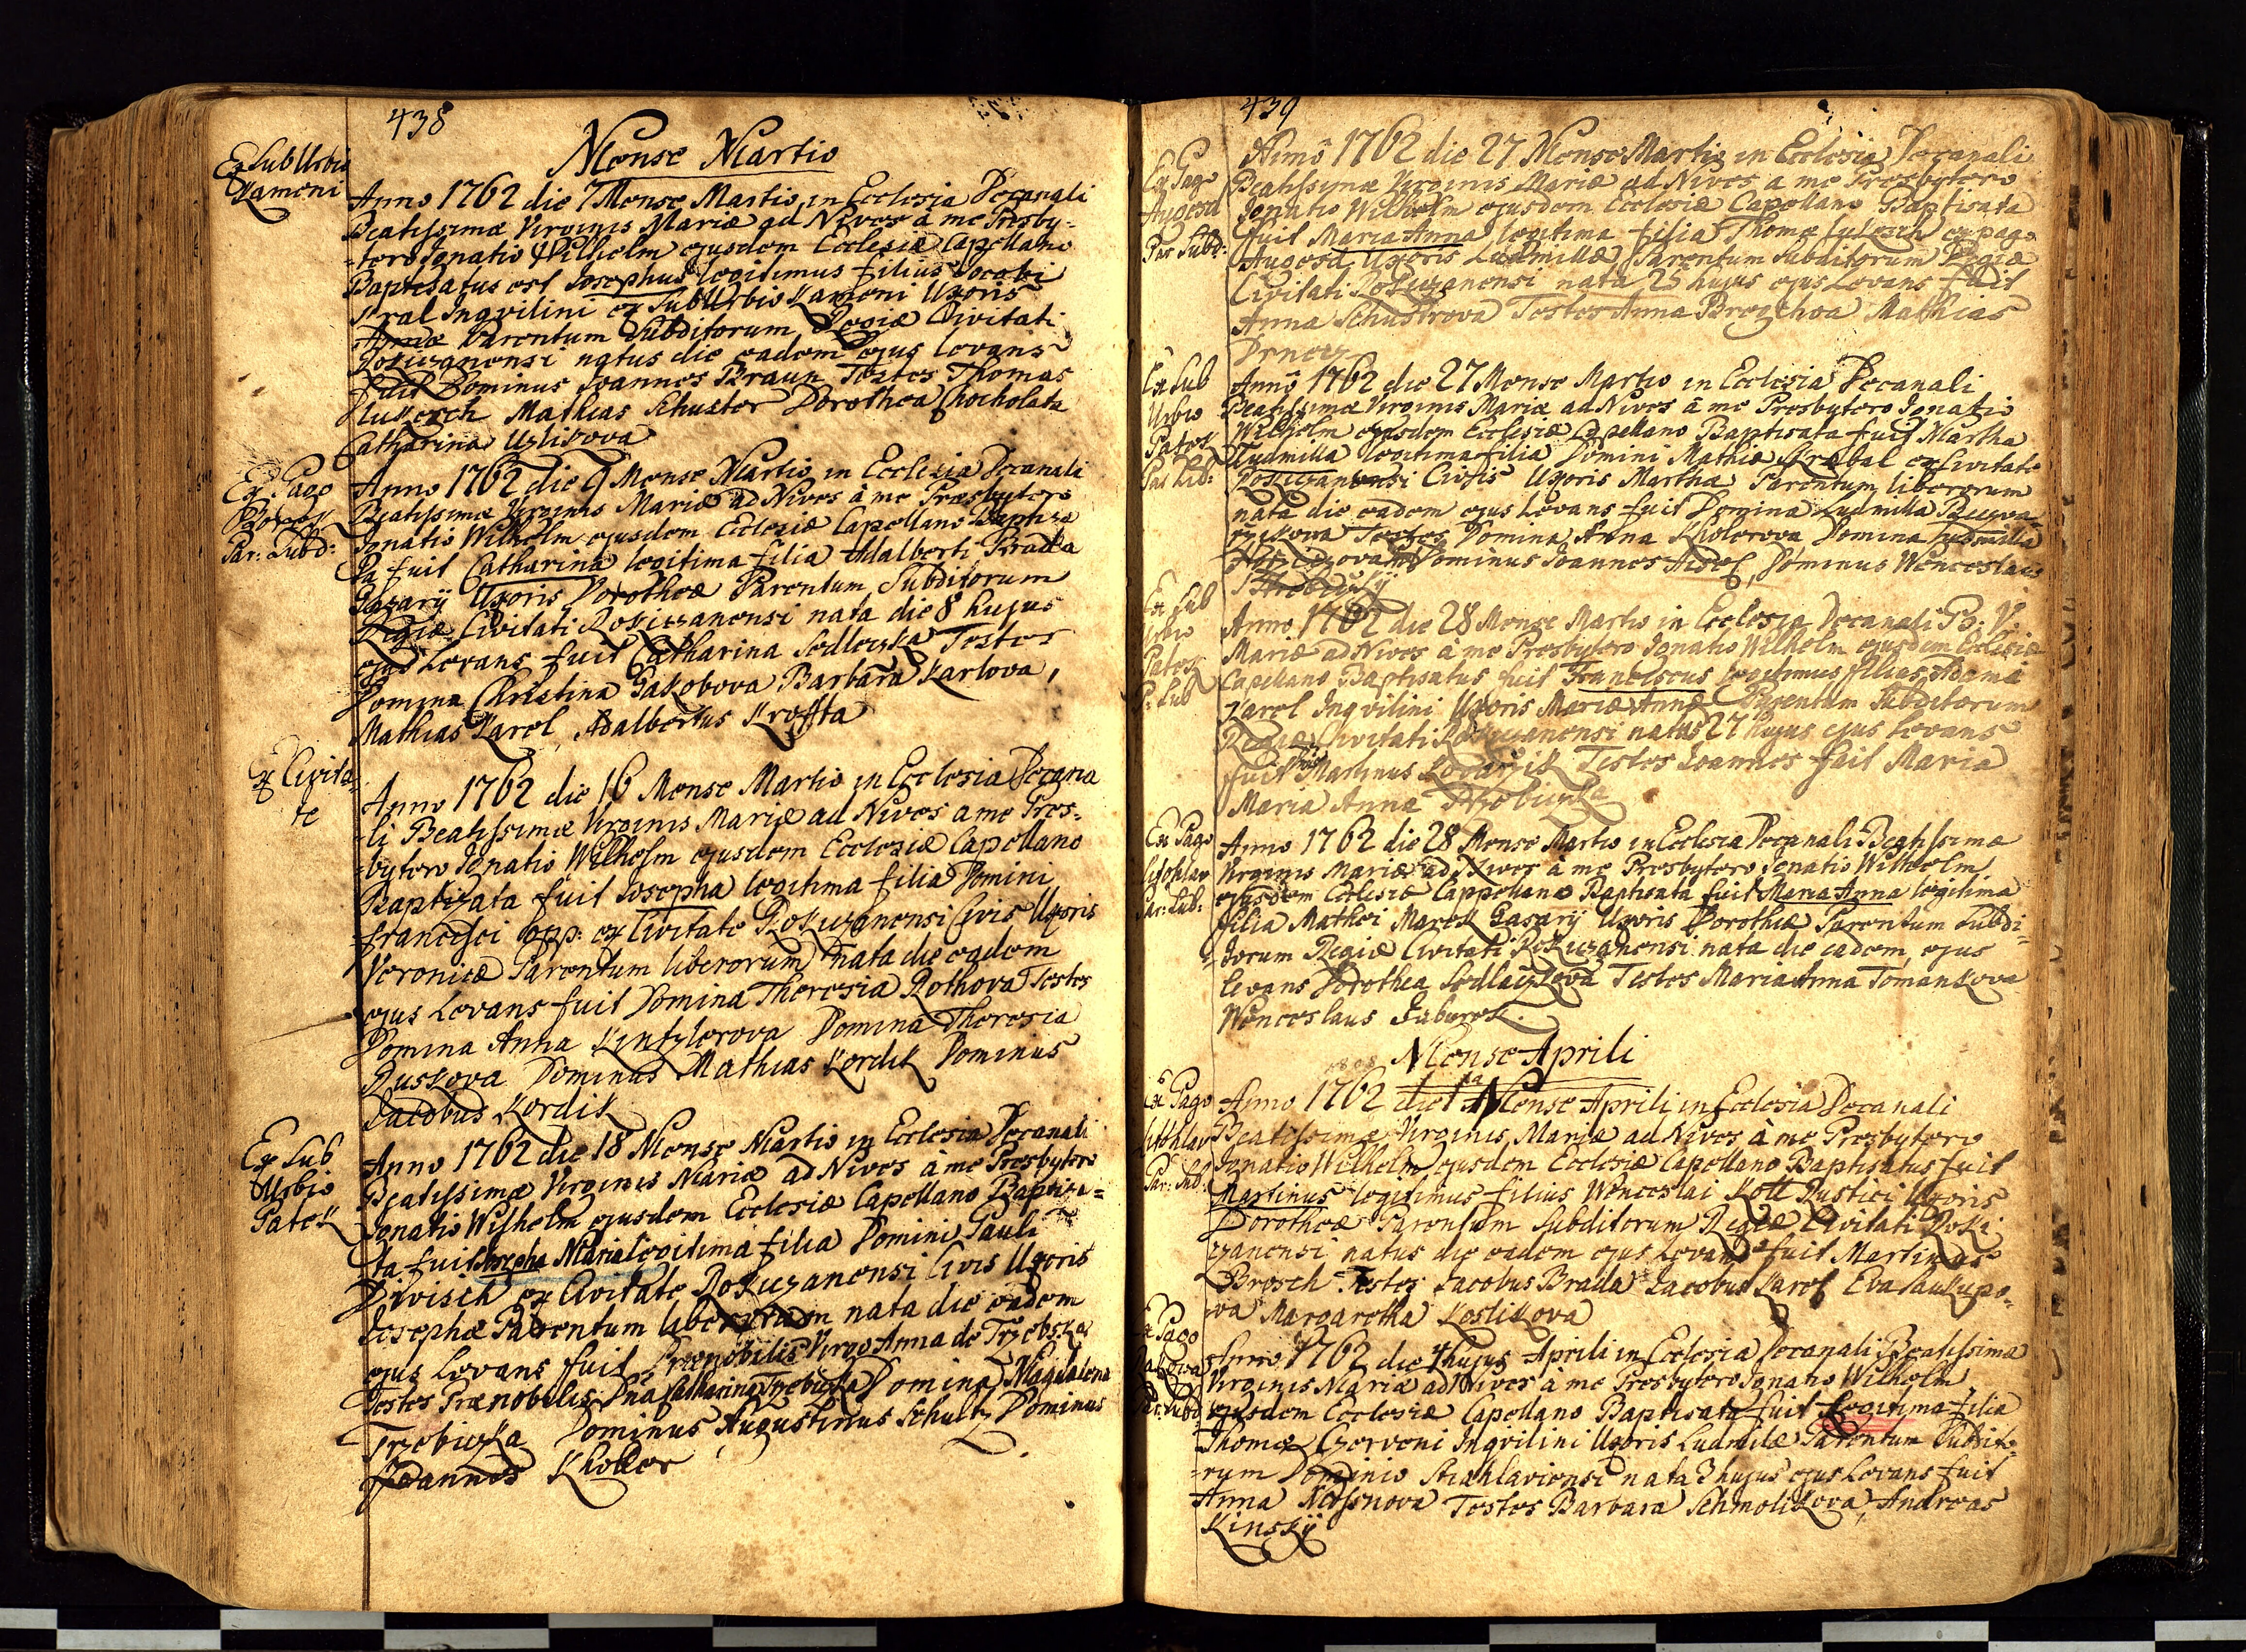 438
Mense Martio
Ex SubUrbio
Kameni
Anno 1762 die 7 Mense Martio in Ecclesia Decanali
Beatissimæ Virginis Mariæ ad Nives à me Presby-
-tero Ignatio Wilhelm ejusdem Ecclesiæ Capellano
Baptisatus est Josephus legitimus filius Jacobi
Kral Inqvilini ex SubUrbio Kameni Uxoris
Annæ Parentum Subditorum Regiæ Civitati
Rokizanensi natus die eadem ejus levans
fuit Dominus Joannes Braun Testes Thomas
Mathias Schuster Dorothea Chocholata
Catharina
Ex Pago
Borek
Par: Subd:
Anno 1762 die 9 Mense Martio in Ecclesia Decanali
Beatissimæ Virginis Mariæ ad Nives à me Presbytero
Ignatio Wilhelm ejusdem Ecclesiæ Capellano Baptiza
ta fuit Catharina legitima filia Adalberti Brada
Gazarij Uxoris Dorotheæ Parentum Subditorum
Regiæ Civitati Rokizzanensi nata die 8 hujus
ejus Levans fuit Catharina Sedleczka Testes
Domina Christina Gakobova Barbara Karlova,
Mathias Karel, Adalbertus Kroffta
Ex Civita-
te
Anno 1762 die 16 Mense Martio in Ecclesia Decana
-li Beatissimæ Virginis Mariæ ad Nives a me Pres-
-bytero Ignatio Wilhelm ejusdem Ecclesiæ Capellano
Baptizata fuit Josepha legitima filia Domini
Francisci Opp: ex Civitate Rokizanensi Civis Uxoris
Veronicæ Parentum liberorum nata die eadem
ejus Levans fuit Domina Theresia Rothova Testes
Domina Anna Kintzlerova Domina Theresia
Ruskova Dominus Mathias Kordik Dominus
Jacobus Kordik
Ex Sub
Urbio
Patek
Anno 1762 die 18 Mense Martio in Ecclesia Decanali
Beatissimæ Virginis Mariæ ad Nives à me Presbytero
Ignatio Wilhelm ejusdem Ecclesiæ Capellano Baptisa-
ta fuit Josepha Maria legitima filia Domini Pauli
Diwisch ex Civitate Rokizanensi Civis Uxoris
Josephæ Parentum liberorum nata die eadem
ejus Levans fuit Prænobilis Virgo Anna de Trzebska
Testes Prænobilis Dna Catharina Trzebiczka Domina Magdalena
Trzebiczka Dominus Augustinus Schultz Dominus
Joannes Kholler
439
Ex Pago
Augezd
Par Subd:
Anno 1762 die 27 Mense Martio in Ecclesia Decanali
Beatissimæ Virginis Mariæ ad Nives a me Presbytero
Ignatio Wilhelm ejusdem Ecclesiæ Capellano Baptisata
fuit Maria Anna legitima filia Thomæ ex pago
Augezd Uxoris Ludmillæ Parentum Subditorum Regiæ
Civitati Rokizanensi nata 25 hujus ejus Levans fuit
Anna Schustrova Testes Anna Mathias
Ex Sub
Urbio
Patek
Par Lib:
Anno 1762 die 27 Mense Martio in Ecclesia Decanali
Beatissimæ Virginis Mariæ ad Nives à me Presbytero Ignatio
Wilhelm ejusdem Ecclesiæ Capellano Baptisata fuit Martha
Ludmilla legitima filia Domini Mathiæ Hrabal ex Civitate
Rokizanensi Civis Uxoris Marthæ Parentum liberorum
nata die eadem ejus Levans fuit Domina Ludmilla
Testes Domina Anna Khlerova Domina Ludmilla
Dominus Joannes Dominus Wenceslaus
Ex Sub
Urbio
Patek
P: Sub
Anno 1762 die 28 Mense Martio in Ecclesia Decanali B: V:
Mariæ ad Nives à me Presbytero Ignatio Wilhelm ejusdem Ecclesiæ
Capellano Baptisatus fuit Franciscus legitimus filius Adami
Karel Inqvilini Uxoris Mariæ Annæ Parentum Subditorum
Regiæ Civitati Rokizanensi natus 27 hujus ejus Levans
fuit Martinus Testes Joannes fait Maria
Maria Anna Trzebiczka
Ex Pago
Litohlav
Par: Sub:
Anno 1762 die 28 Mense Martio in Ecclesia Decanali Beatissimæ
Virginis Mariæ ad Nives à me Presbytero Ignatio Wilhelm
ejusdem Ecclesiæ Cappellano Baptisata fuit Maria Anna legitima
filia Mathei Marek Gasarij Uxoris Dorotheæ Parentum Subdi-
-torum Regiæ Civitati Rokizanensi nata die eadem ejus
levans Dorothea Sedlaczkova Testes Maria Anna Tomankova
Wenceslaus Faburek.
Mense Aprili
Ex Pago
Litohlav
Par: Sub:
Anno 1762 die 1ma Mense Aprili in Ecclesia Decanali
Beatissimæ Virginis Mariæ ad Nives à me Presbytero
Ignatio Wilhelm ejusdem Ecclesiæ Capellano Baptisatus fuit
Martinus legitimus filius Wenceslai Kott Rustici Uxoris
Dorotheæ Parentum Subditorum Regiæ Civitati Roki-
zanensi natus die eadem ejus Levans fuit Martinus
Brosch Testes Jacobus Brada Jacobus Karel Eva Saukupo-
va Margaretha Koslikova
Ex Pago
Par: Subd
Anno 1762 die 4 hujus Aprili in Ecclesia Decanali Beatissimæ
Virginis Mariæ ad Nives à me Presbytero Ignatio Wilhelm
ejusdem Ecclesiæ Capellano Baptisata fuit Legitima filia
Thomæ Czerveni Inqvilini Uxoris Ludmilæ Parentum Subdito-
-rum Dominio Stiahlaviensi nata 3 hujus ejus Levans fuit
Anna Testes Barbara Schmolikova, Andreas
Kinskÿ